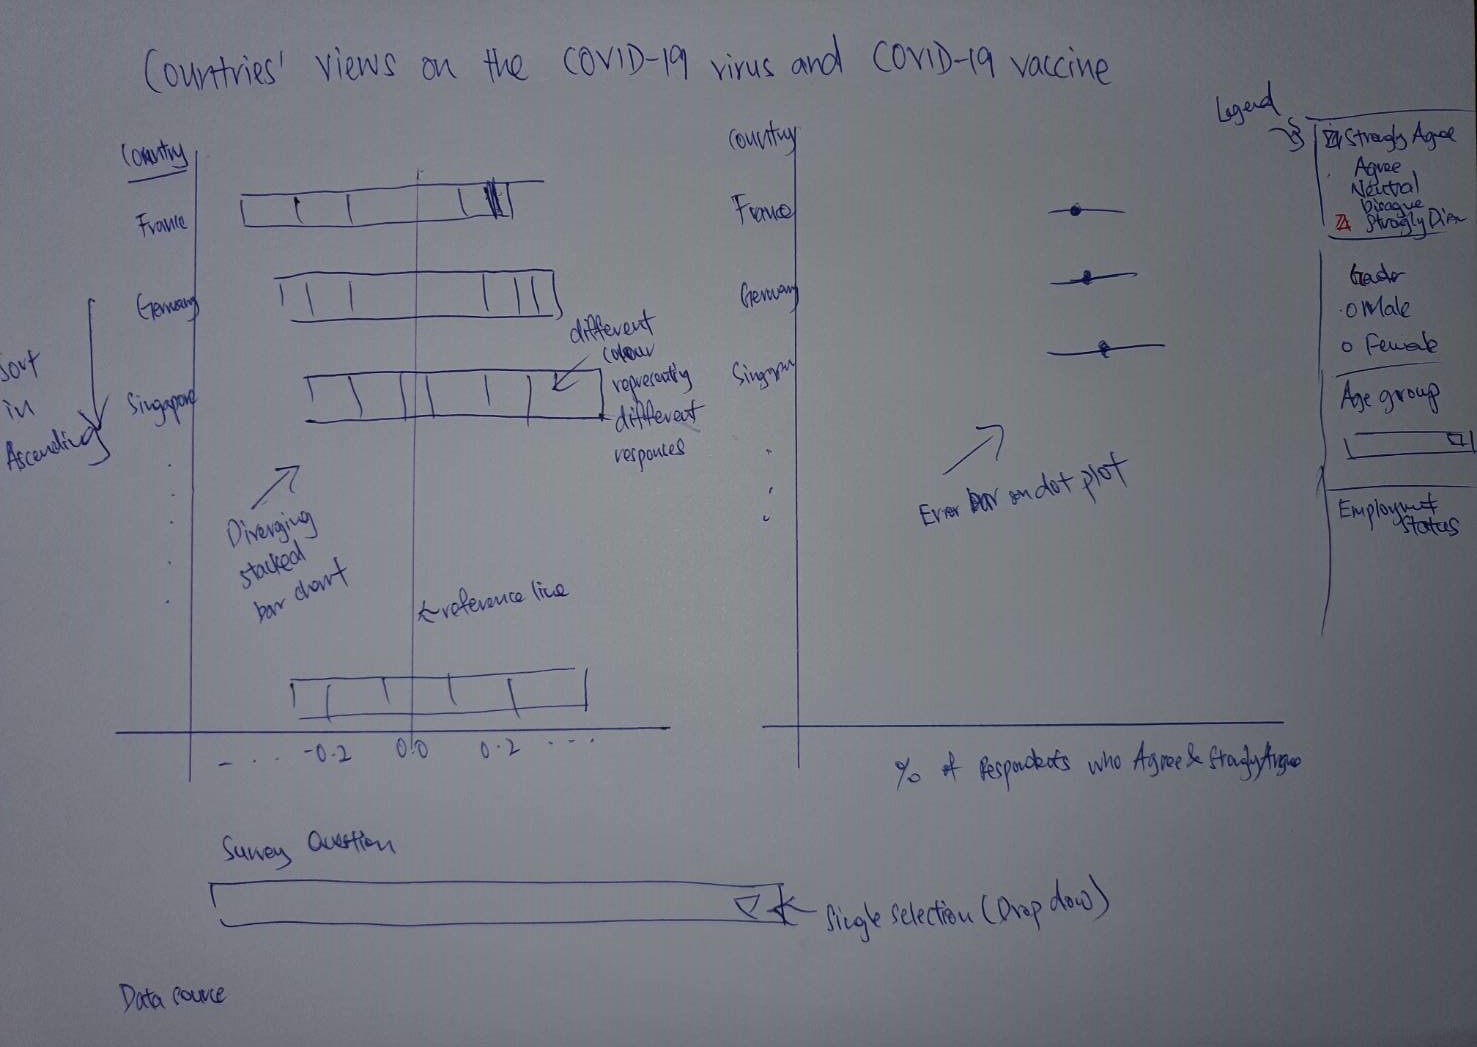 Countries' views on the COVID-19 virus and COVID-19 vaccine
Country
France
Germany
Singapore
Sort
in
Ascending
different
colour
representing
different
responces
Diverging
stacked
bar chart
reference line
-0.2 0.0 0.2
Survey Question
Single Selection (Drop down)
Data source
Country
France
Germany
Error bar on dot plot
% of Respondents who Agree & Strongly Agree
Legend
Strongly Agree
Agree
Neutral
Disagree
Male
Female
Age group
Employment
Status